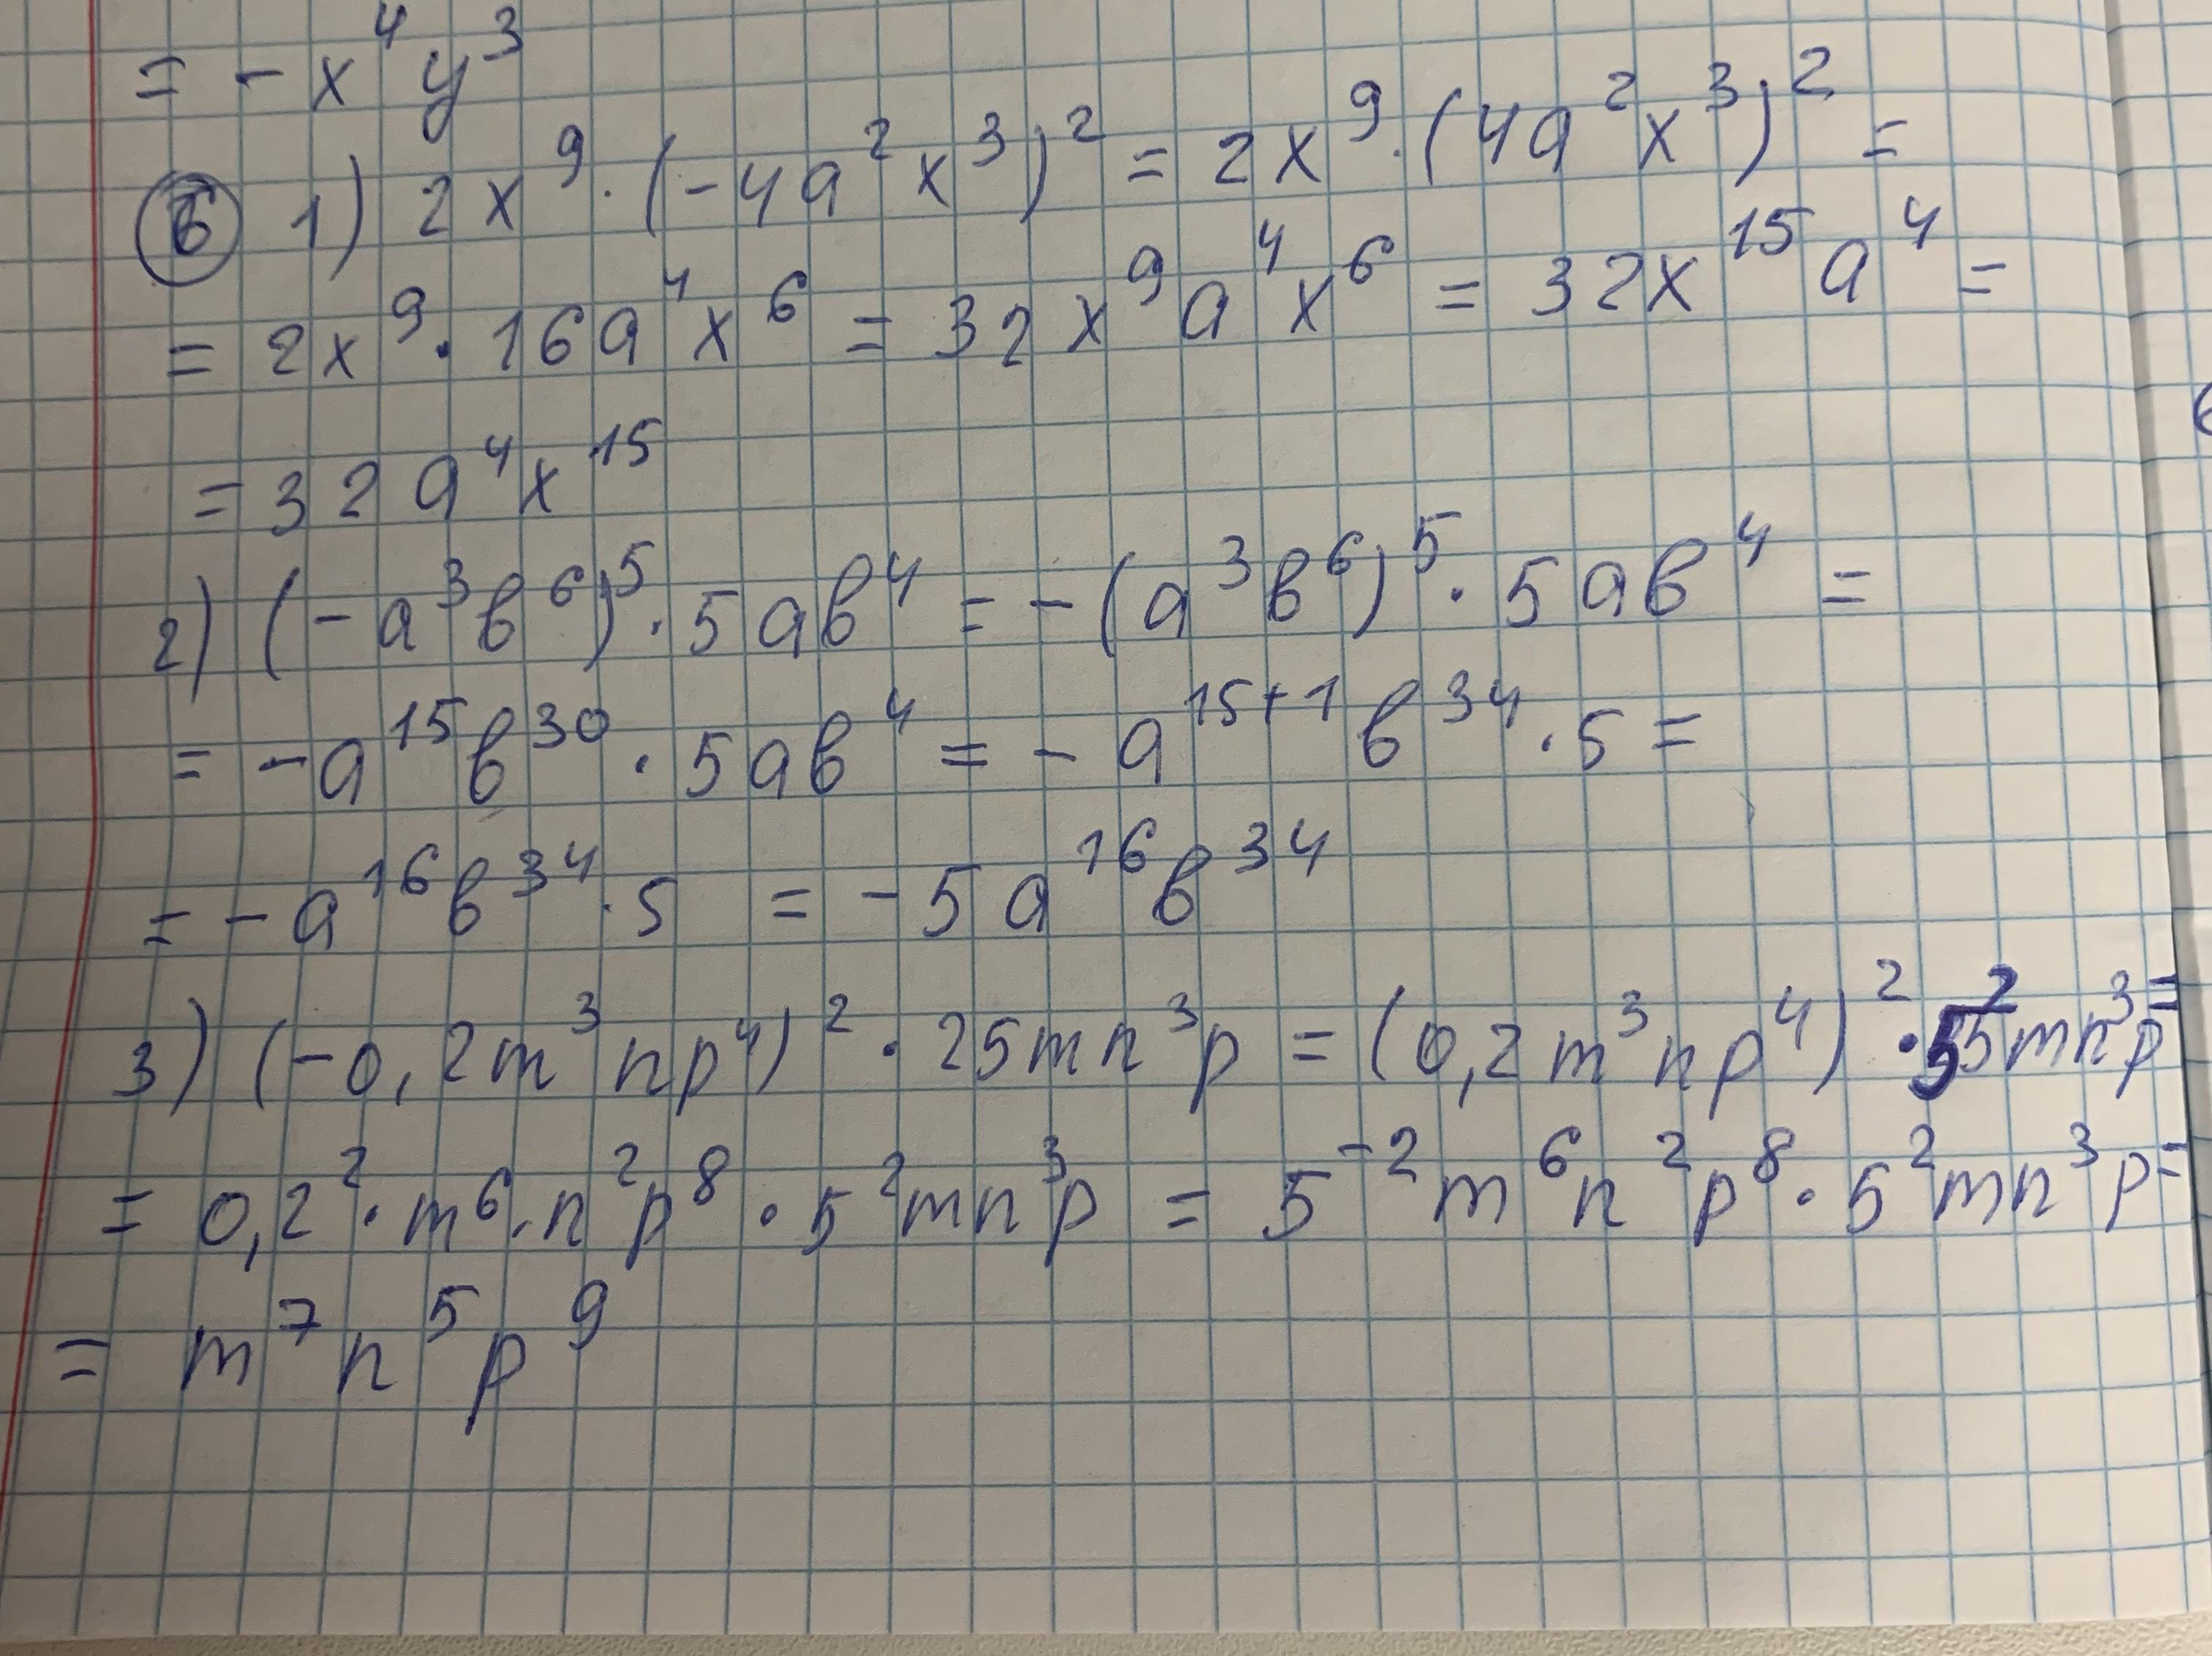 = - x⁴ y³
⑥ 1) 2x⁹ · (-4a²x³)² = 2x⁹ · (4a²x³)² =
= 2x⁹ · 16a⁴x⁶ = 32x⁹a⁴x⁶ = 32x¹⁵a⁴ =
= 32a⁴x¹⁵
2) (-a³в⁶)⁵ · 5aв⁴ = -(a³в⁶)⁵ · 5aв⁴ =
= -a¹⁵в³⁰ · 5aв⁴ = -a¹⁵⁺¹в³⁴ · 5 =
= -a¹⁶в³⁴ · 5 = -5a¹⁶в³⁴
3) (-0,2m³np⁴)² · 25mn³p = (0,2m³np⁴)² · 5²mn³p =
= 0,2² · m⁶ · n²p⁸ · 5²mn³p = 5⁻²m⁶n²p⁸ · 5²mn³p =
= m⁷n⁵p⁹